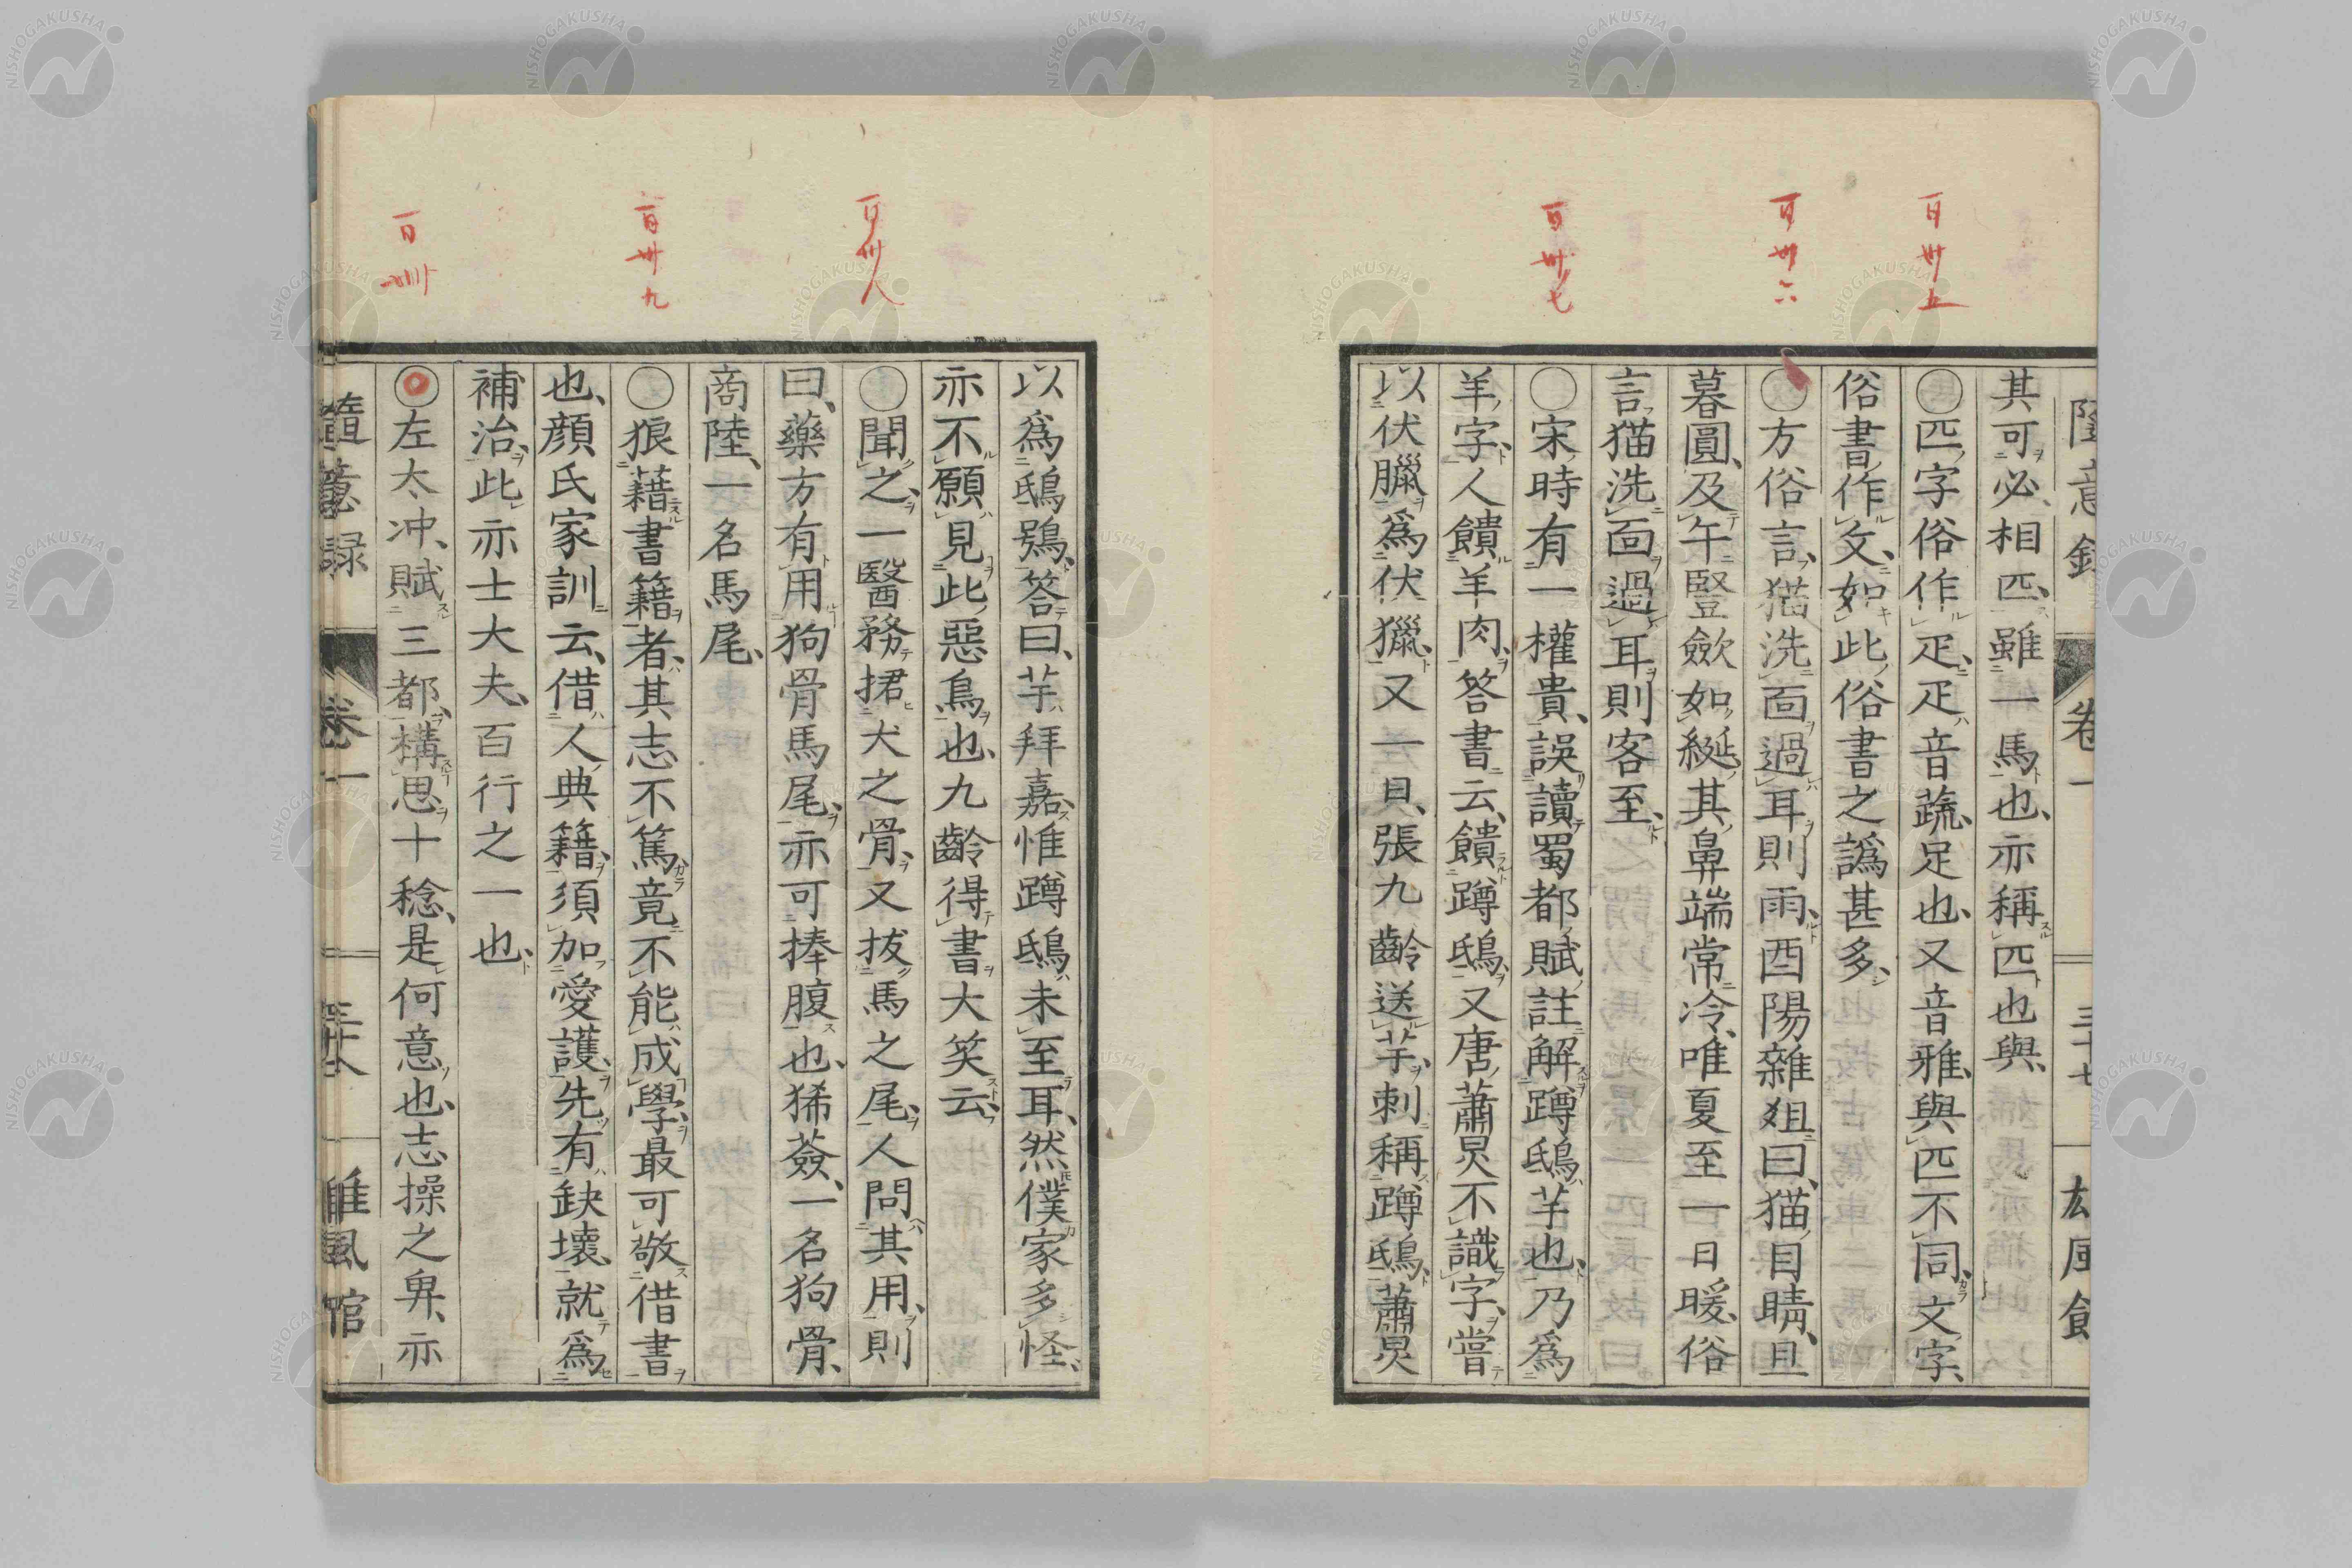 百卅五
百卅六
百卅七
隨意錄 卷一 三十七
其可必相匹雖一馬也亦稱匹也與
○匹字俗作疋疋音蔬足也又音雅與匹不同文字
俗書作文如此俗書之譌甚多
○方俗言猫洗面過耳則雨酉陽雜俎曰猫目睛旦
暮圓及午豎歛如綖其鼻端常冷唯夏至一日暖俗
言猫洗面過耳則客至
○宋時有一權貴誤讀蜀都賦註解蹲鴟芋也乃爲
羊字人饋羊肉答書云饋蹲鴟又唐蕭炅不識字嘗
以伏臘爲伏獵又一日張九齡送芋刺稱蹲鴟蕭炅
百卅八
百卅九
百卌
以爲鴟鴞答曰芋拜嘉惟蹲鴟未至耳然僕家多怪
亦不願見此惡鳥也九齡得書大笑云
○聞之一醫務捃犬之骨又拔馬之尾人問其用則
曰藥方有用狗骨馬尾亦可捧腹也豨薟一名狗骨
商陸一名馬尾
○狼藉書籍者其志不篤竟不能成學最可敬借書
也顔氏家訓云借人典籍須加愛護先有缺壞就爲
補治此亦士大夫百行之一也
○左太冲賦三都構思十稔是何意也志操之卑亦
隨意録 卷一 維風館